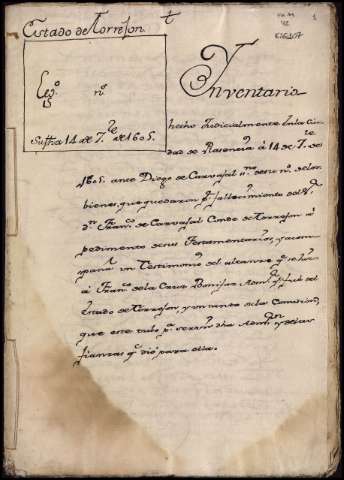 Estado de Torrejon
Leg.º n.º
15
Su fha 14 de 7.re de 1605.
Inventario
hecho Judicialmente en la Ciu
dad de Plasencia à 14 de 7.re de
1605. ante Diego de Carvajal ss.no de su n.º de los
bienes, que quedaron p.r fallecimiento del S.r
d.n Fran.co de Carvajal Conde de Torrejon à
pedimento de sus Testamentarios, y acom
paña un Testimonio del alcance q.e se hizo
à Fran.co de la Cruz Adm.or q.e fuè del
Estado de Torrejon, y un tanto de la
que este tubo p.a servir dha Adm.on y de las
fianzas q.e diò para ella.